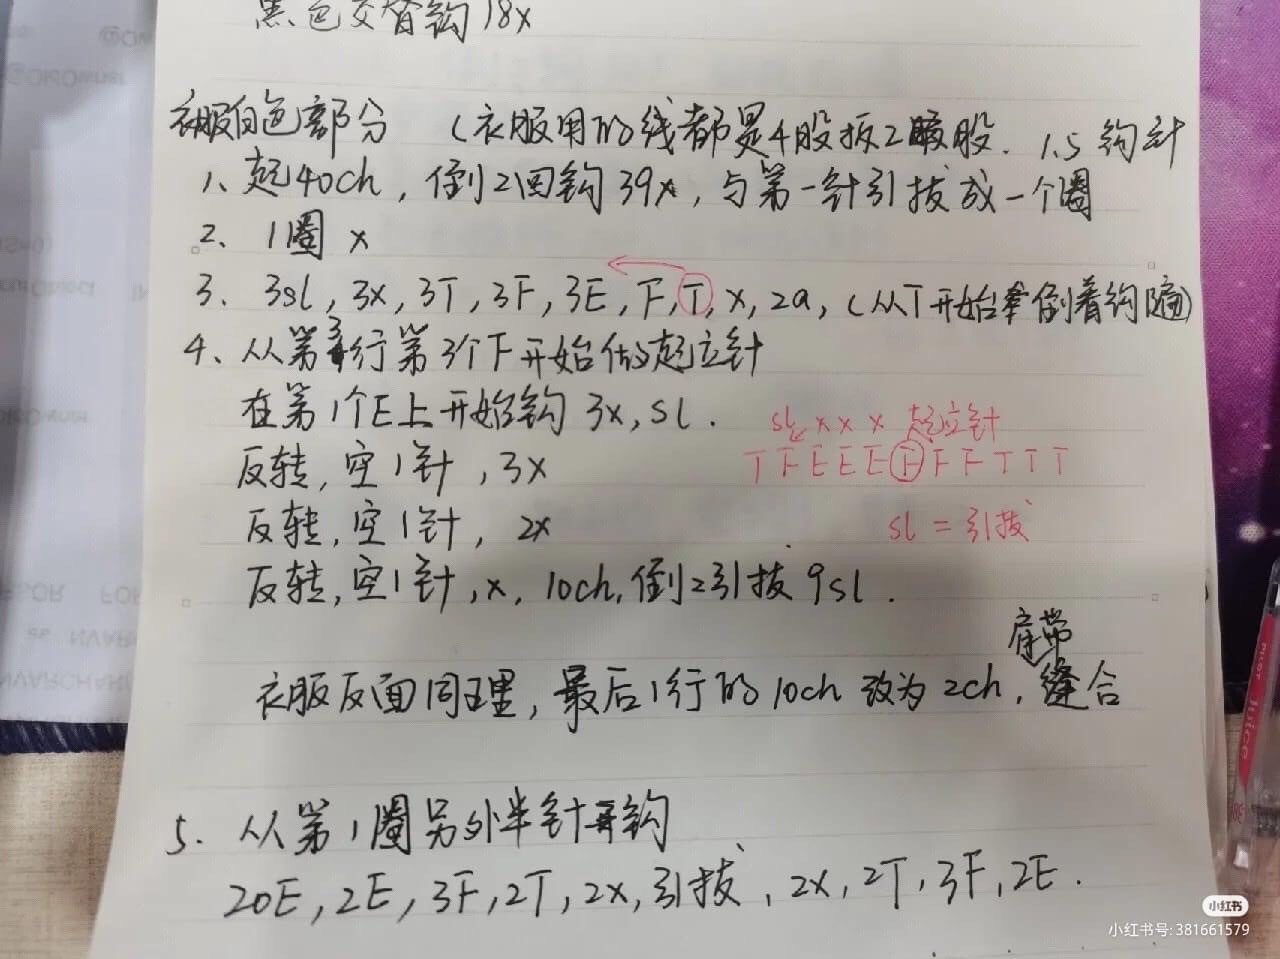 黑色交替钩18x
衣服白色部分 （衣服用的线都是4股拆2股. 1.5钩针
1、起40ch, 倒2回钩39x, 与第一针引拔成一个圈
2、1圈 x
3、3sl, 3x, 3T, 3F, 3E, F, T, x, 2a, (从T开始倒着钩)
4、从第3行第3个F开始做起立针
在第1个E上开始钩 3x, sl.
sl x x x 起立针
反转, 空1针, 3x
T F E E E F F F T T T
反转, 空1针, 2x
sl = 引拔
反转, 空1针, x, 10ch, 倒2引拔 9sl.
肩带
衣服反面同理, 最后1行的10ch 改为2ch, 缝合
5、从第1圈另外半针钩
20E, 2E, 3F, 2T, 2x, 引拔, 2x, 2T, 3F, 2E.
小红书
小红书号: 381661579
Juice